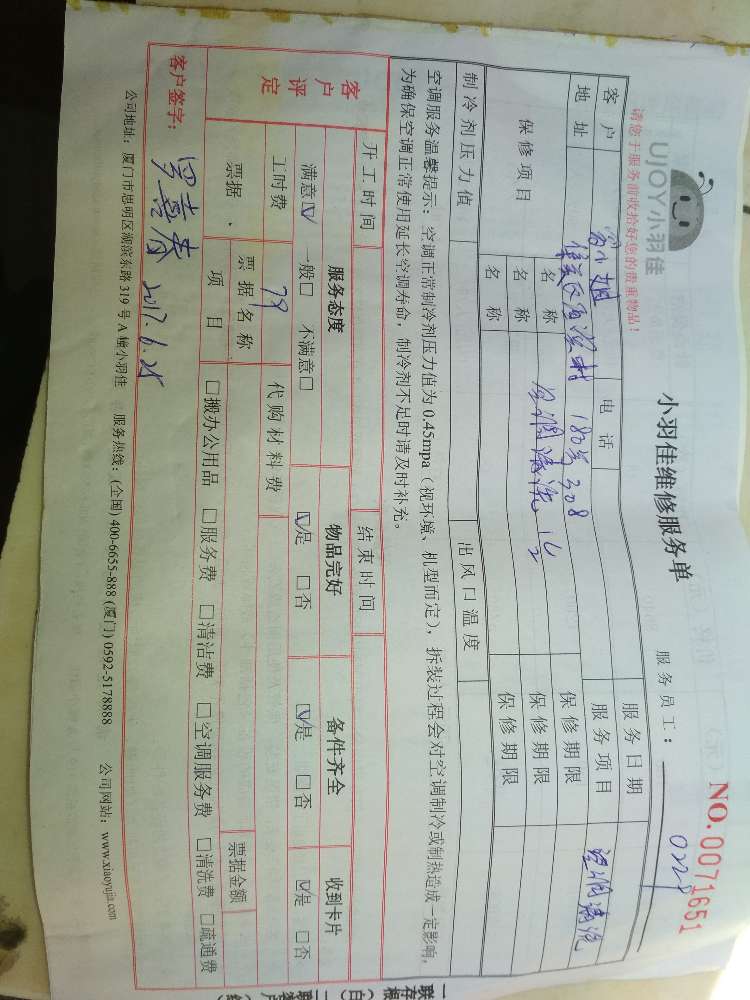 UJOY小羽佳
请您于服务前收拾好您的贵重物品!
小羽佳维修服务单
NO.0071651
服务员工: 0228
客户 小姐 电话 服务日期
地址 村 180号308 服务项目 空调清洗
保修项目 名称 空调清洗 保修期限
名称 保修期限
名称 保修期限
制冷剂压力值 出风口温度
空调服务温馨提示:空调正常制冷剂压力值为0.45mpa(视环境、机型而定),拆装过程会对空调制冷或制热造成一定影响,
为确保空调正常使用延长空调寿命,制冷剂不足时请及时补充。
开工时间 结束时间
客户评定 服务态度 物品完好 备件齐全 收到卡片
满意☑ 一般□ 不满意□ ☑是 □否 ☑是 □否 ☑是 □否
工时费 79 代购材料费
票据、 票据名称 票据金额
项目 □搬办公用品 □服务费 □清洁费 □空调服务费 □清洗费 □疏通费
客户签字: 2017.6.25
公司地址:厦门市思明区湖滨东路319号A幢小羽佳 服务热线:(全国)400-6655-888 (厦门)0592-5178888 公司网站:www.xiaoyujia.com